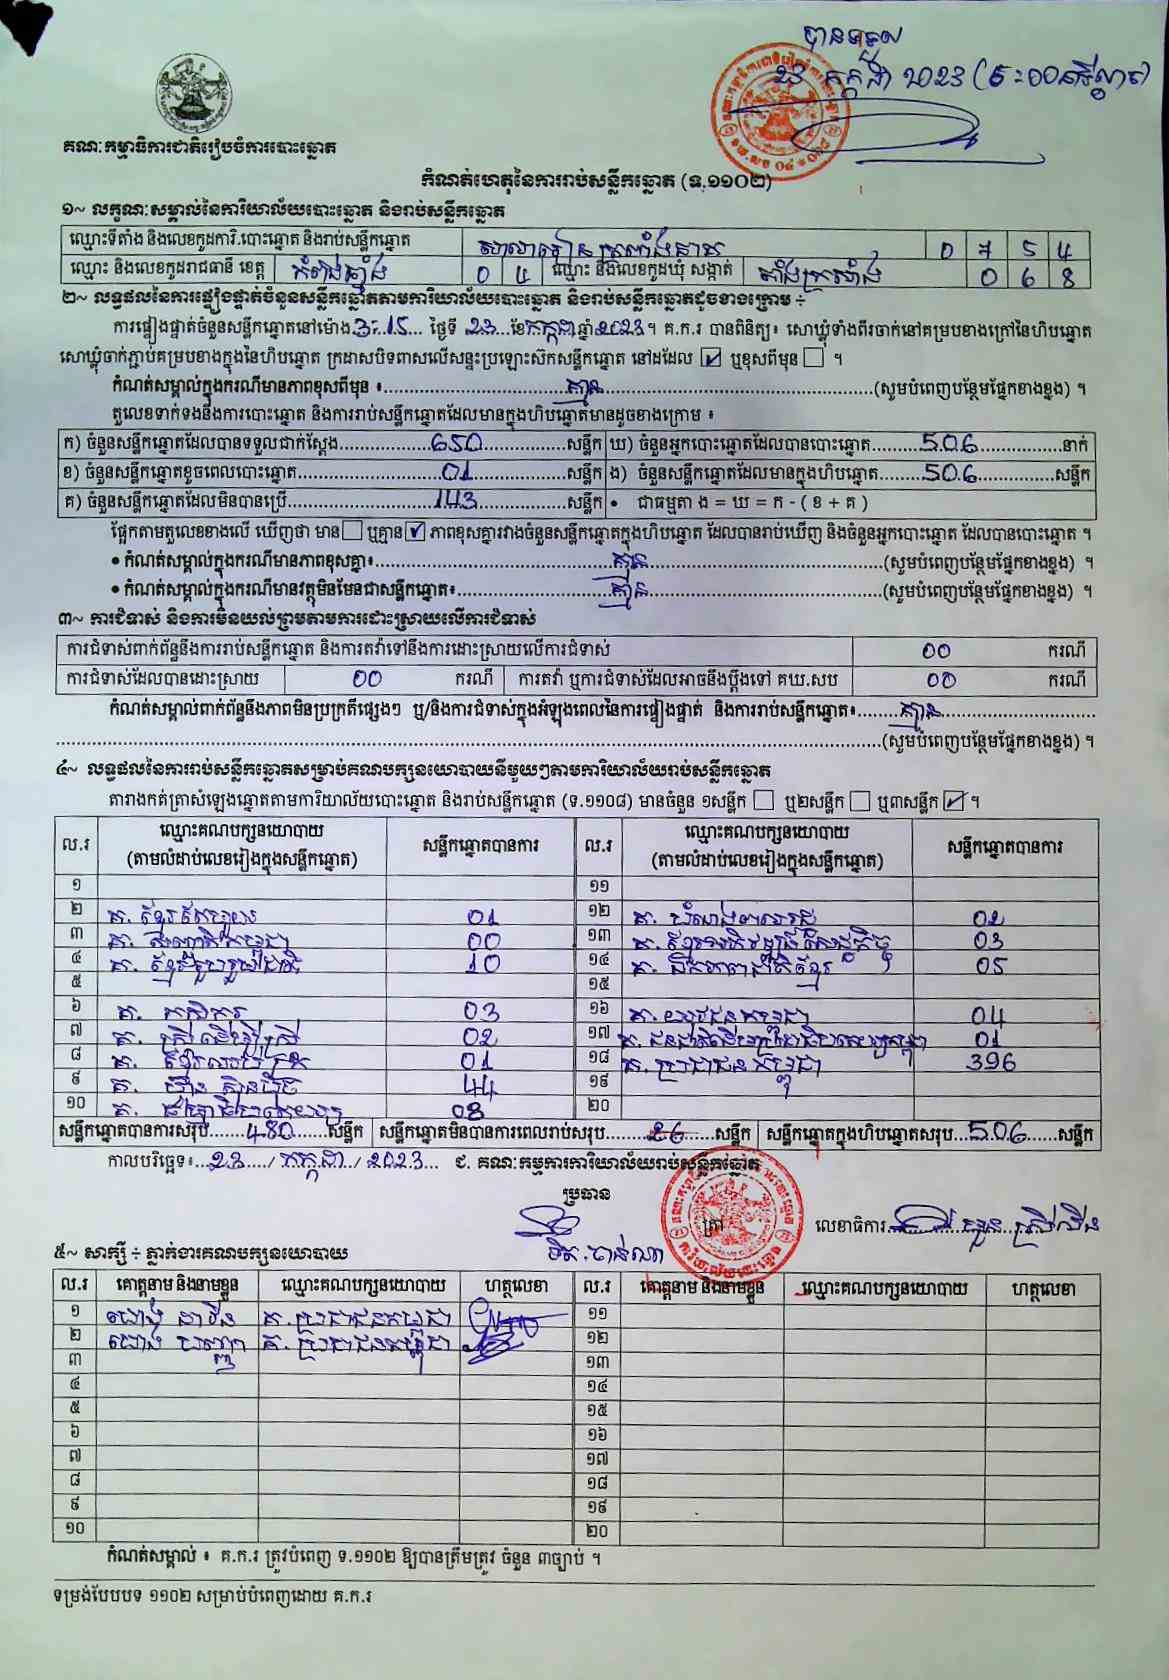 បានទទួល
23 កក្កដា 2023 (5:00នាទីល្ងាច)
គណៈកម្មាធិការជាតិរៀបចំការបោះឆ្នោត
កំណត់ហេតុនៃការរាប់សន្លឹកឆ្នោត (ទ.១១០២)
១~ លក្ខណៈសម្គាល់នៃការិយាល័យបោះឆ្នោត និងរាប់សន្លឹកឆ្នោត
ឈ្មោះទីតាំង និងលេខកូដការិ.បោះឆ្នោត និងរាប់សន្លឹកឆ្នោត 0 7 5 4
ឈ្មោះ និងលេខកូដរាជធានី ខេត្ត កំពង់ឆ្នាំង 0 4 ឈ្មោះ និងលេខកូដឃុំ សង្កាត់ តាំងក្រសាំង 0 6 8
២~ លទ្ធផលនៃការផ្ទៀងផ្ទាត់ចំនួនសន្លឹកឆ្នោតតាមការិយាល័យបោះឆ្នោត និងរាប់សន្លឹកឆ្នោតដូចខាងក្រោម ÷
ការផ្ទៀងផ្ទាត់ចំនួនសន្លឹកឆ្នោតនៅម៉ោង 3:15 ថ្ងៃទី 23 ខែ កក្កដា ឆ្នាំ 2023 ។ គ.ក.រ បានពិនិត្យ៖ សោឃ្លុំទាំងពីរចាក់នៅគម្របខាងក្រៅនៃហិបឆ្នោត
សោឃ្លុំចាក់ភ្ជាប់គម្របខាងក្នុងនៃហិបឆ្នោត ក្រដាសបិទពាសលើសន្ទះប្រឡោះស៊កសន្លឹកឆ្នោត នៅដដែល ☑ ឬខុសពីមុន ☐ ។
កំណត់សម្គាល់ក្នុងករណីមានភាពខុសពីមុន ៖ គ្មាន (សូមបំពេញបន្ថែមផ្នែកខាងខ្នង) ។
តួលេខទាក់ទងនឹងការបោះឆ្នោត និងការរាប់សន្លឹកឆ្នោតដែលមានក្នុងហិបឆ្នោតមានដូចខាងក្រោម ៖
ក) ចំនួនសន្លឹកឆ្នោតដែលបានទទួលជាក់ស្ដែង 650 សន្លឹក ឃ) ចំនួនអ្នកបោះឆ្នោតដែលបានបោះឆ្នោត 506 នាក់
ខ) ចំនួនសន្លឹកឆ្នោតខូចពេលបោះឆ្នោត 01 សន្លឹក ង) ចំនួនសន្លឹកឆ្នោតដែលមានក្នុងហិបឆ្នោត 506 សន្លឹក
គ) ចំនួនសន្លឹកឆ្នោតដែលមិនបានប្រើ 143 សន្លឹក • ជាធម្មតា ង = ឃ = ក - ( ខ + គ )
ផ្អែកតាមតួលេខខាងលើ ឃើញថា មាន ☐ ឬគ្មាន ☑ ភាពខុសគ្នារវាងចំនួនសន្លឹកឆ្នោតក្នុងហិបឆ្នោត ដែលបានរាប់ឃើញ និងចំនួនអ្នកបោះឆ្នោត ដែលបានបោះឆ្នោត ។
• កំណត់សម្គាល់ក្នុងករណីមានភាពខុសគ្នា៖ គ្មាន (សូមបំពេញបន្ថែមផ្នែកខាងខ្នង) ។
• កំណត់សម្គាល់ក្នុងករណីមានវត្ថុមិនមែនជាសន្លឹកឆ្នោត៖ គ្មាន (សូមបំពេញបន្ថែមផ្នែកខាងខ្នង) ។
៣~ ការជំទាស់ និងការមិនយល់ព្រមតាមការដោះស្រាយលើការជំទាស់
ការជំទាស់ពាក់ព័ន្ធនឹងការរាប់សន្លឹកឆ្នោត និងការតវ៉ាទៅនឹងការដោះស្រាយលើការជំទាស់ 00 ករណី
ការជំទាស់ដែលបានដោះស្រាយ 00 ករណី ការតវ៉ា ឬការជំទាស់ដែលអាចនឹងប្ដឹងទៅ គឃ.សប 00 ករណី
កំណត់សម្គាល់ពាក់ព័ន្ធនឹងភាពមិនប្រក្រតីផ្សេងៗ ឬ/និងការជំទាស់ក្នុងអំឡុងពេលនៃការផ្ទៀងផ្ទាត់ និងការរាប់សន្លឹកឆ្នោត៖ គ្មាន
(សូមបំពេញបន្ថែមផ្នែកខាងខ្នង) ។
៤~ លទ្ធផលនៃការរាប់សន្លឹកឆ្នោតសម្រាប់គណបក្សនយោបាយនីមួយៗតាមការិយាល័យរាប់សន្លឹកឆ្នោត
តារាងកត់ត្រាសំឡេងឆ្នោតតាមការិយាល័យបោះឆ្នោត និងរាប់សន្លឹកឆ្នោត (ទ.១១០៨) មានចំនួន ១សន្លឹក ☐ ឬ២សន្លឹក ☐ ឬ៣សន្លឹក ☑ ។
ល.រ ឈ្មោះគណបក្សនយោបាយ (តាមលំដាប់លេខរៀងក្នុងសន្លឹកឆ្នោត) សន្លឹកឆ្នោតបានការ ល.រ ឈ្មោះគណបក្សនយោបាយ (តាមលំដាប់លេខរៀងក្នុងសន្លឹកឆ្នោត) សន្លឹកឆ្នោតបានការ
១ ១១
២ គ. ខ្មែរឥស្សរៈ 01 ១២ គ. 02
៣ គ. សញ្ជាតិកម្ពុជា 00 ១៣ គ. ខ្មែរអភិវឌ្ឍន៍សេដ្ឋកិច្ច 03
៤ គ. ខ្មែររួបរួមជាតិ 10 ១៤ គ. ឯកភាពជាតិខ្មែរ 05
៥ ១៥
៦ គ. កសិករ 03 ១៦ គ. យុវជនកម្ពុជា 04
៧ គ. ស្ត្រីដើម្បីស្ត្រី 02 ១៧ គ. ជនជាតិដើមប្រជាធិបតេយ្យកម្ពុជា 01
៨ គ. 01 ១៨ គ. ប្រជាជនកម្ពុជា 396
៩ គ. ហ៊្វុនស៊ិនប៉ិច 44 ១៩
១០ គ. 08 ២០
សន្លឹកឆ្នោតបានការសរុប 480 សន្លឹក សន្លឹកឆ្នោតមិនបានការពេលរាប់សរុប 26 សន្លឹក សន្លឹកឆ្នោតក្នុងហិបឆ្នោតសរុប 506 សន្លឹក
កាលបរិច្ឆេទ៖ 23 / កក្កដា / 2023 ជ. គណៈកម្មការការិយាល័យរាប់សន្លឹកឆ្នោត
ប្រធាន
ត្រា
លេខាធិការ
៥~ សាក្សី ÷ ភ្នាក់ងារគណបក្សនយោបាយ
ល.រ គោត្តនាម និងនាមខ្លួន ឈ្មោះគណបក្សនយោបាយ ហត្ថលេខា ល.រ គោត្តនាម និងនាមខ្លួន ឈ្មោះគណបក្សនយោបាយ ហត្ថលេខា
១ គ. ប្រជាជនកម្ពុជា ១១
២ គ. ប្រជាជនកម្ពុជា ១២
៣ ១៣
៤ ១៤
៥ ១៥
៦ ១៦
៧ ១៧
៨ ១៨
៩ ១៩
១០ ២០
កំណត់សម្គាល់ ៖ គ.ក.រ ត្រូវបំពេញ ទ.១១០២ ឱ្យបានត្រឹមត្រូវ ចំនួន ៣ច្បាប់ ។
ទម្រង់បែបបទ ១១០២ សម្រាប់បំពេញដោយ គ.ក.រ